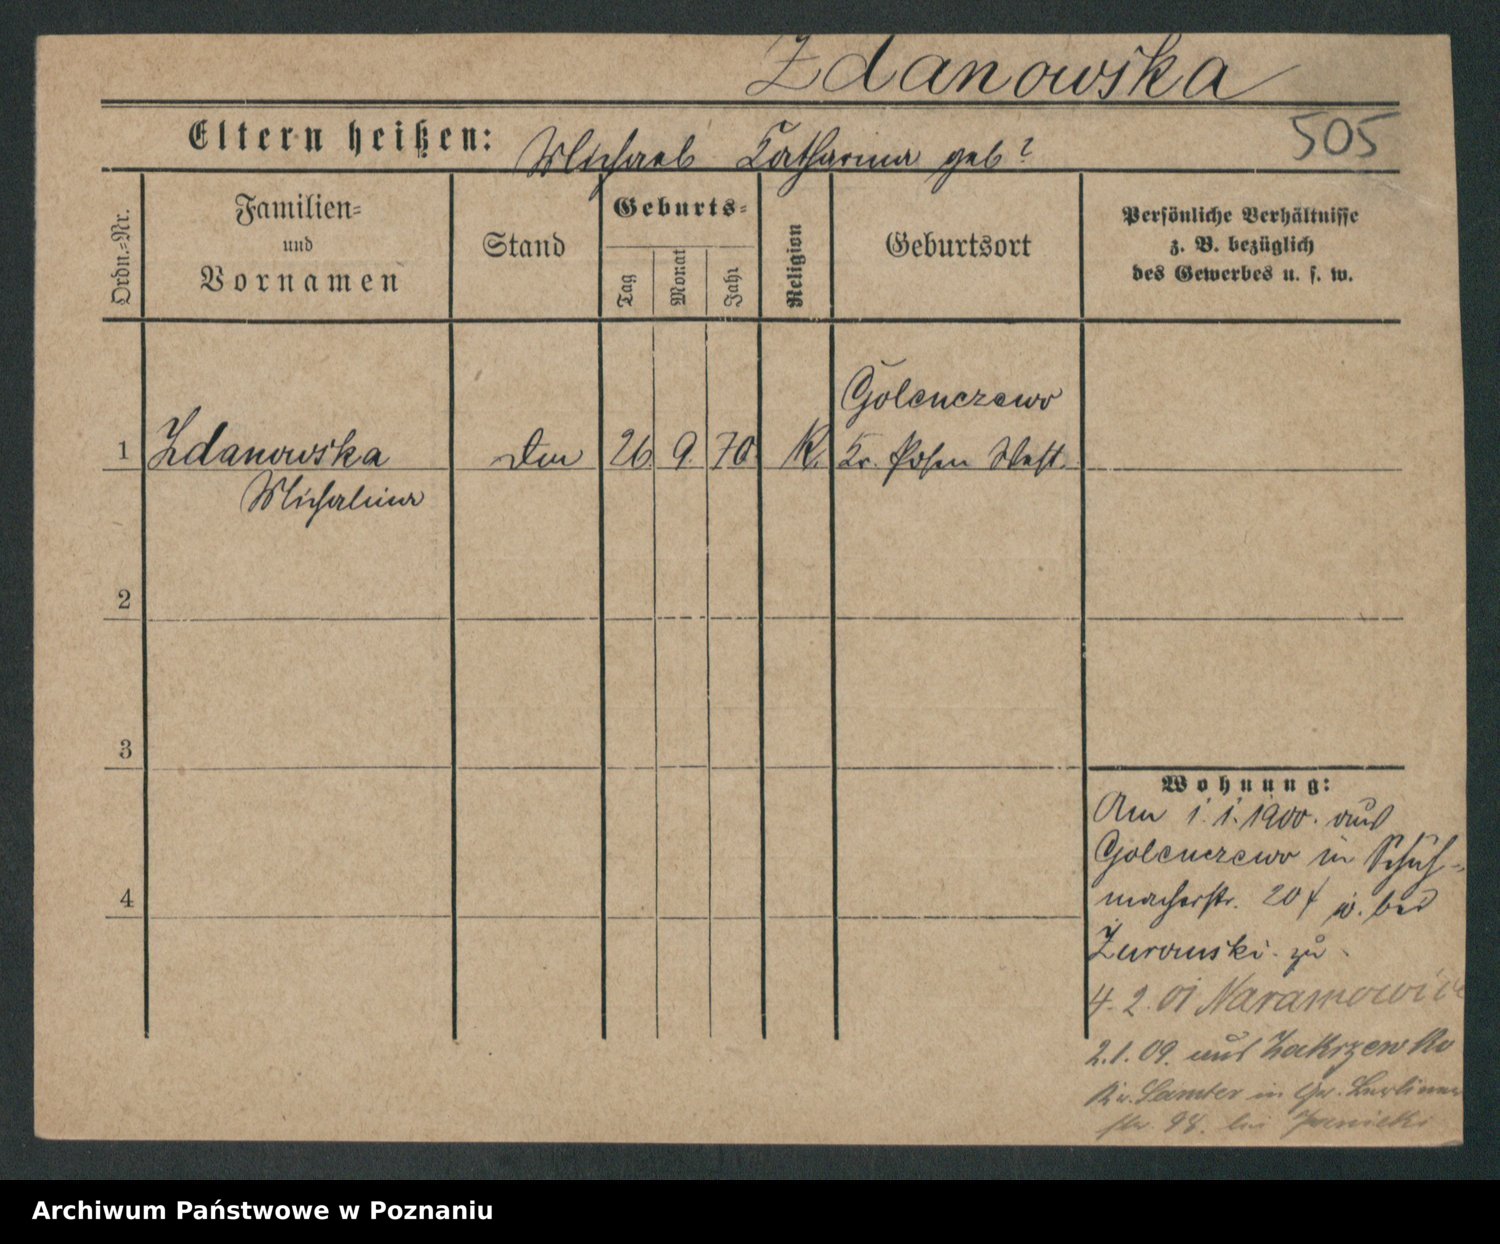 Zdanowska
Eltern heißen: Michael Katharina geb?
505
Ordn.=Nr.
Familien=
und
Vornamen
Stand
Geburts=
Tag
Monat
Jahr
Religion
Geburtsort
Persönliche Verhältnisse
z. B. bezüglich
des Gewerbes u. s. w.
1 Zdanowska
Michalina
26 9. 70. K.
Golenczewo
Kr. Posen West.
2
3
4
Wohnung:
Am 1. 1. 1900. aus
Golenczewo in Schuh=
macherstr. 20 bei
Zurowski zu
4. 2. 01 Naramowice
2. 1. 09. aus Zakrzewko
Kr. Samter in Gr. Berliner
str. 98. bei
Archiwum Państwowe w Poznaniu